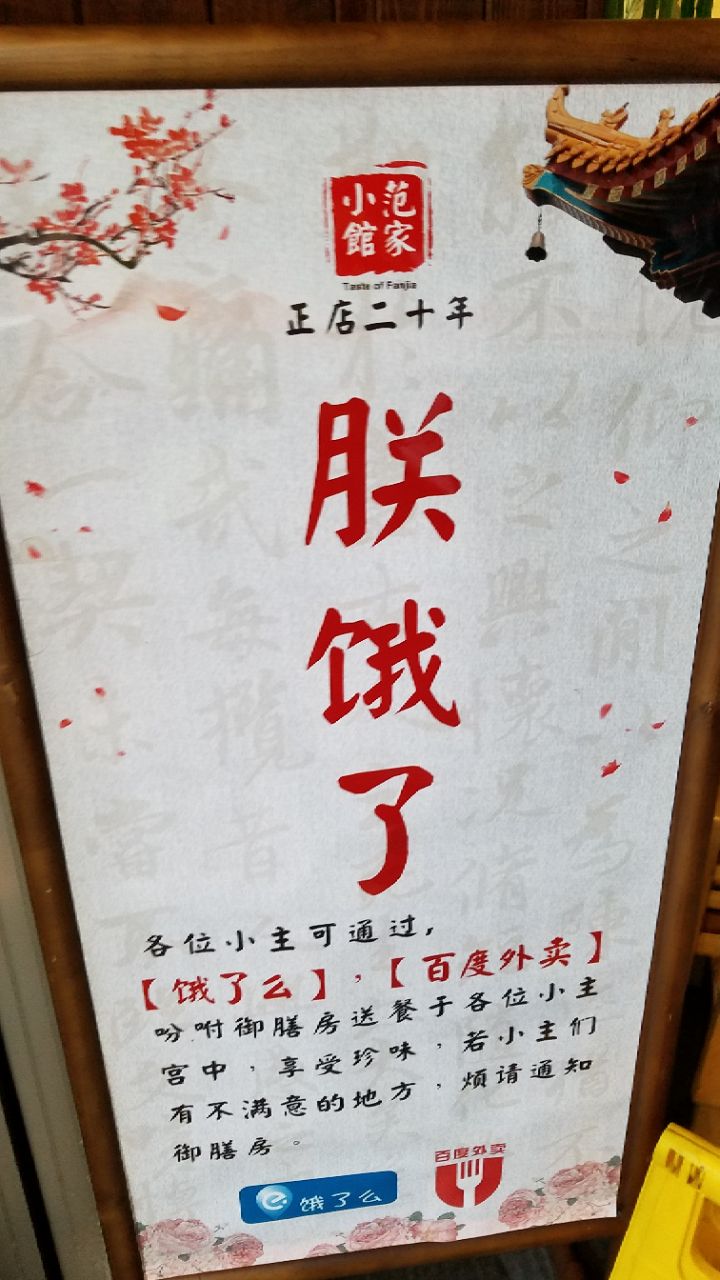 范家小館
Taste of Fanjia
正店二十年
朕饿了
各位小主可通过,
【饿了么】,【百度外卖】
吩咐御膳房送餐于各位小主
宫中,享受珍味,若小主们
有不满意的地方,烦请通知
御膳房。
饿了么
百度外卖